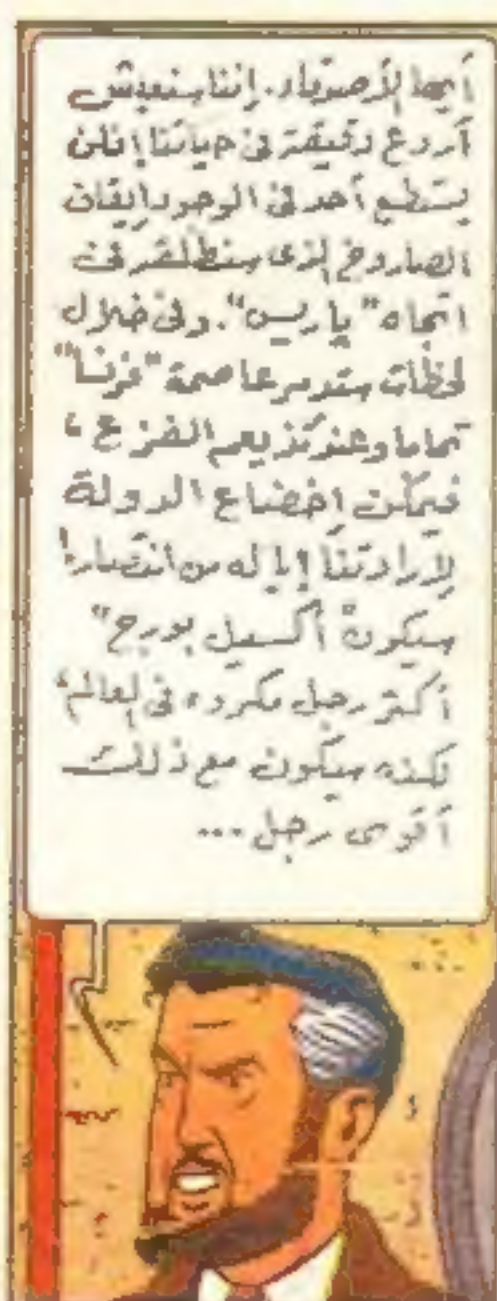 أيها الأصدقاء. إننا سنعيش
أروع دقيقة فى حياتنا! فلن
يستطيع أحد فى الوجود إيقاف
الصاروخ الذى سنطلقه فى
اتجاه "باريس". وفى خلال
لحظات ستدمر عاصمة "فرنسا"
تماما وعندئذ يعم الفزع،
فيمكن إخضاع الدولة
لإرادتنا! يا له من انتصار!
سيكون "أكسيل بورج"
أكثر رجل مكروه فى العالم،
لكنه سيكون مع ذلك
أقوى رجل...